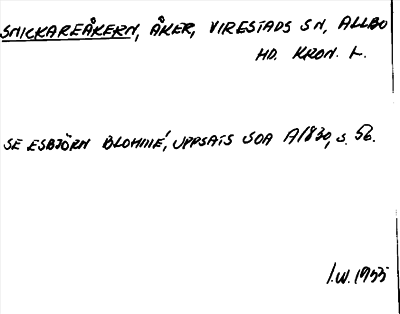 SNICKAREÅKERN, ÅKER, VIRESTADS SN, ALLBO
HD. KRON. L.
SE ESBJÖRN BLOHMÉ, UPPSATS SOA A1830, s. 56.
I.W. 1955